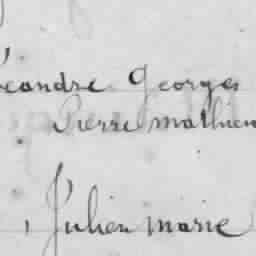 Léandre Georges
Pierre Mathieu
Julien Marie